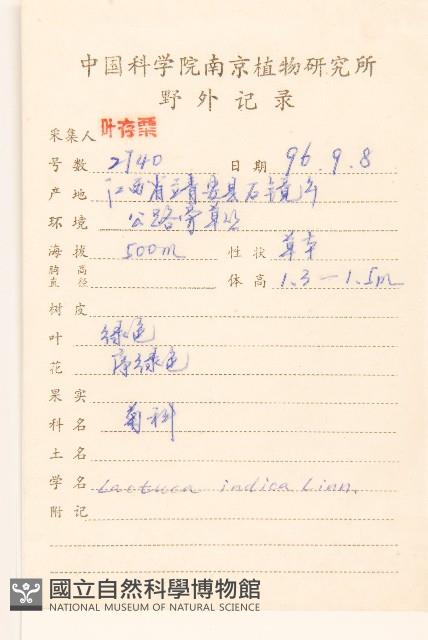 中国科学院南京植物研究所
野外记录
采集人 叶存粟
号数 2740 日期 96.9.8
产地 江西省靖安县石镜
环境 公路旁草丛
海拔 500m 性状 草本
胸高直径 体高 1.3—1.5m
树皮
叶 绿色
花 绿色
果实
科名 菊科
土名
学名 Lactuca indica Linn.
附记
國立自然科學博物館
NATIONAL MUSEUM OF NATURAL SCIENCE